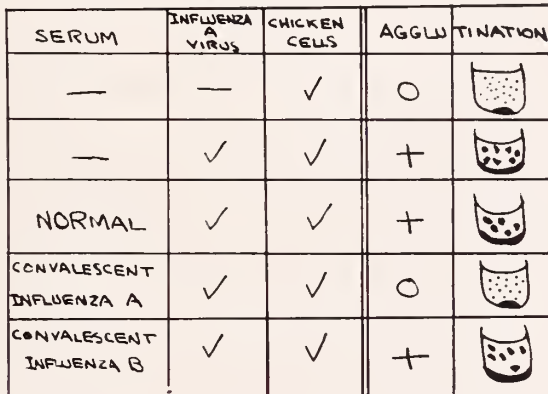 SERUM
INFLUENZA
A
VIRUS
CHICKEN
CELLS
AGGLUTINATION
— — ✓ O
— ✓ ✓ +
NORMAL ✓ ✓ +
CONVALESCENT
INFLUENZA A ✓ ✓ O
CONVALESCENT
INFLUENZA B ✓ ✓ +